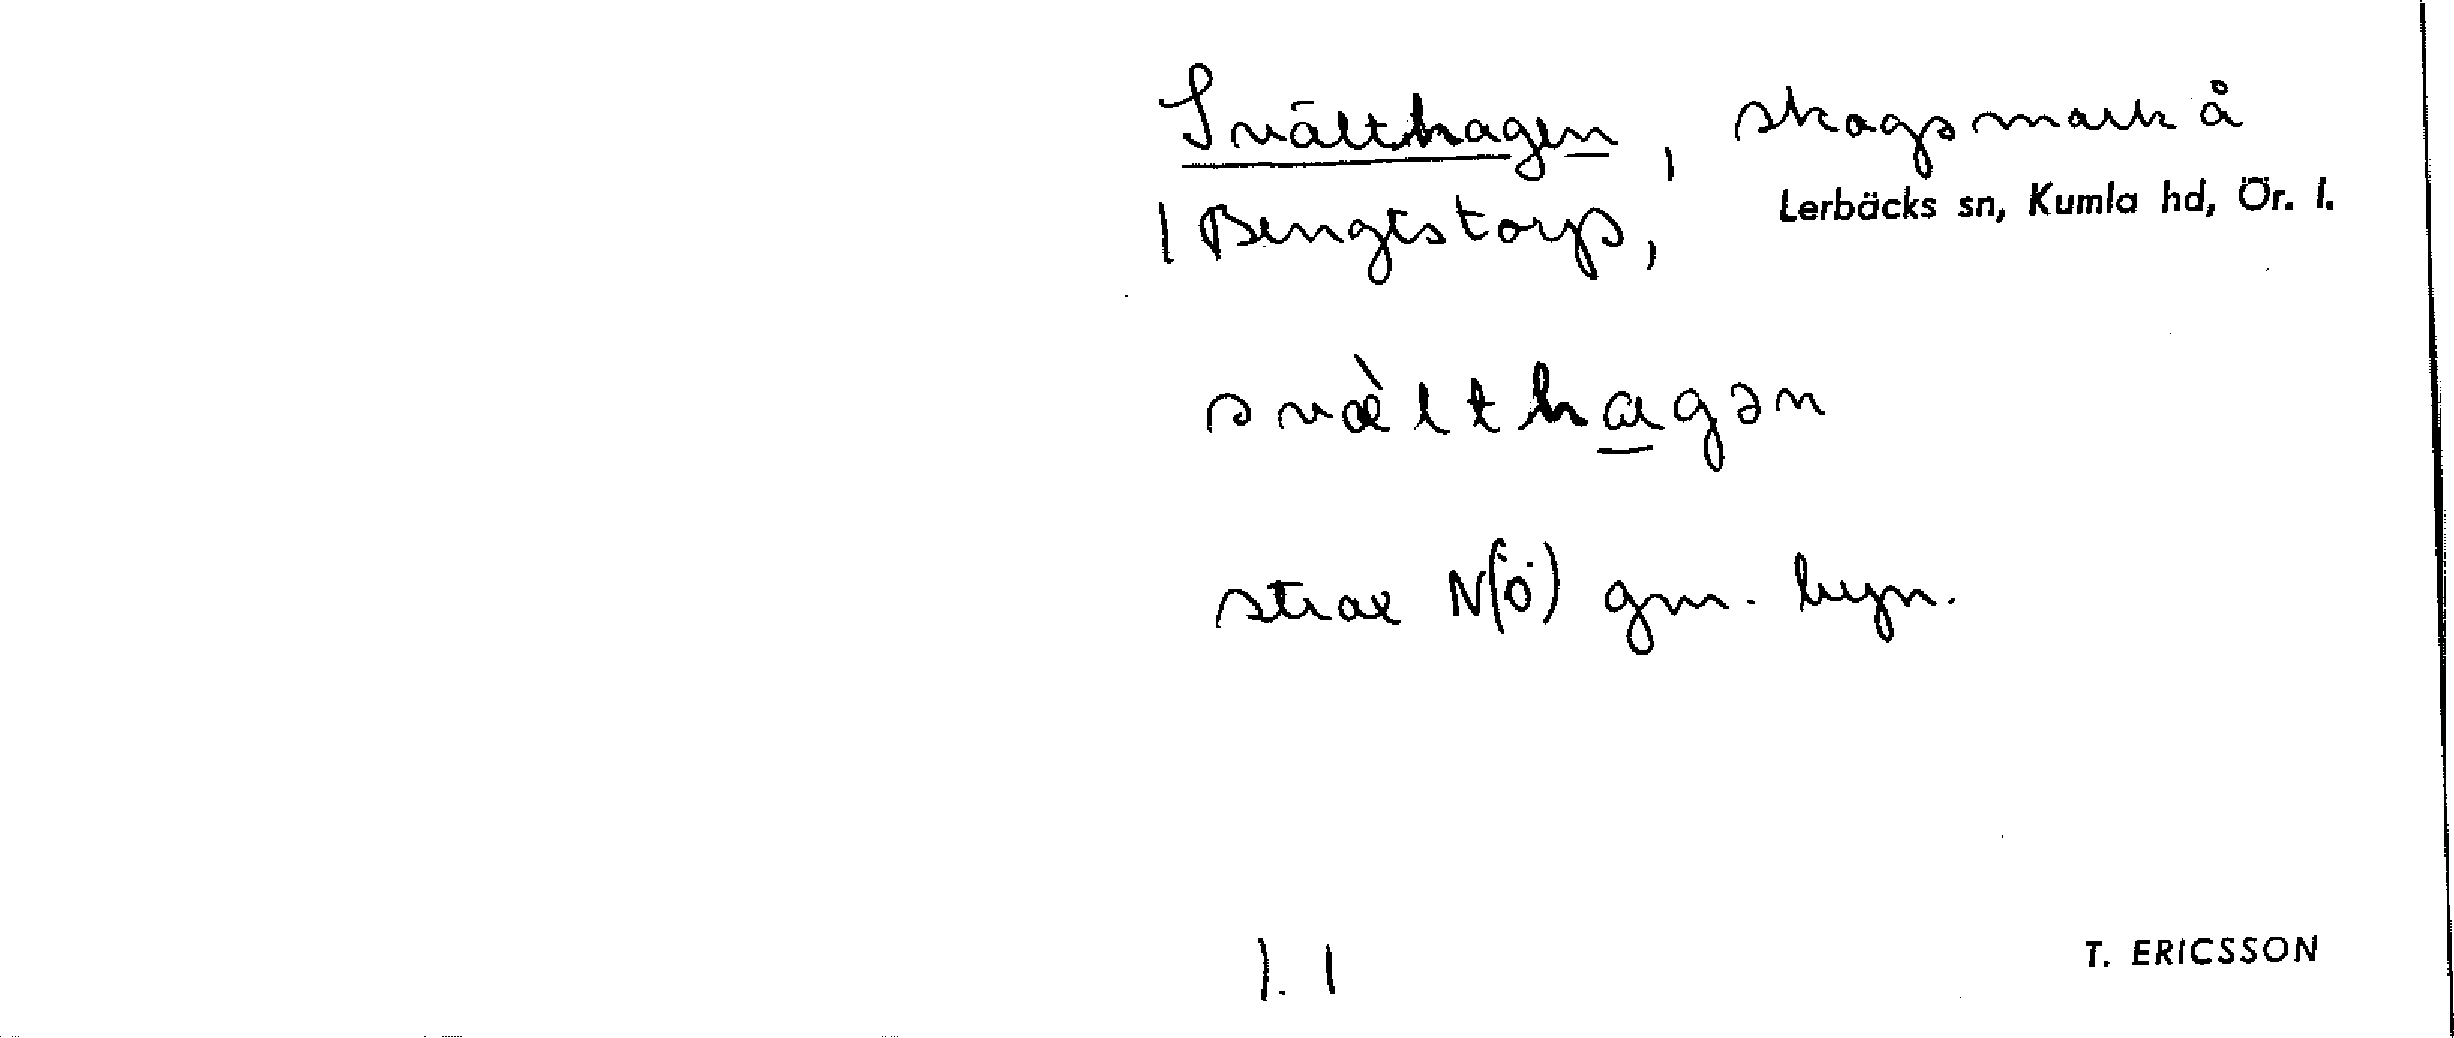 Svälthagen, skogsmark å
1 Bengtstorp, Lerbäcks sn, Kumla hd, Ör. l.
svæ̀lthagən
strax N(Ö) gm. byn.
1. 1
T. ERICSSON